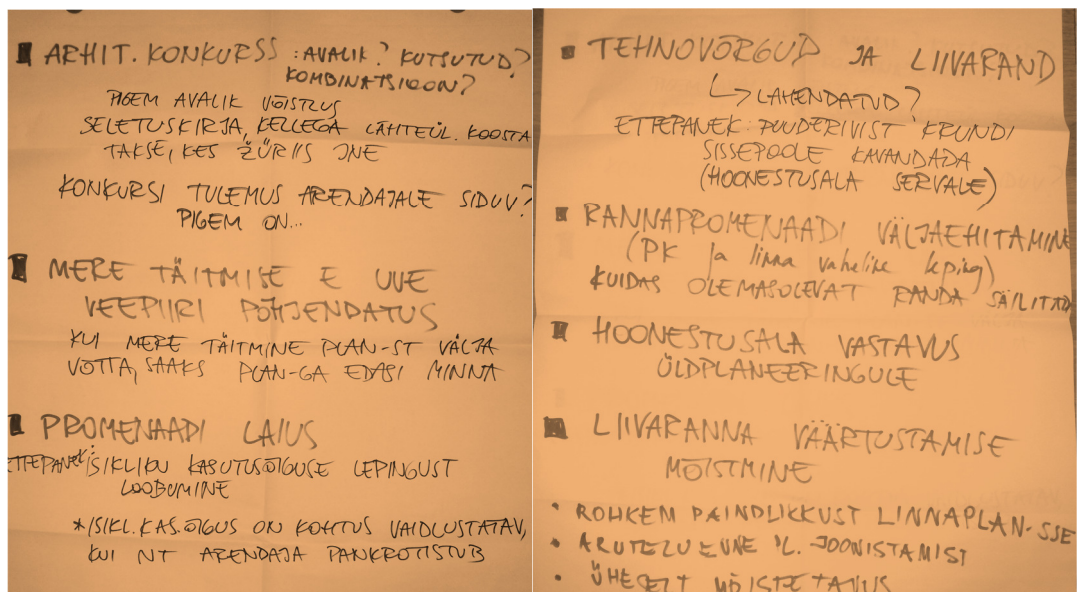 ARHIT. KONKURSS : AVALIK? KUTSUTUD?
KOMBINATSIOON?
PIGEM AVALIK VÕISTLUS
SELETUSKIRJA, KELLEGA LÄHTEÜL. KOOSTA
TAKSE, KES ŽÜRIIS JNE
KONKURSI TULEMUS ARENDAJALE SIDUV?
PIGEM ON...
MERE TÄITMISE E UUE
VEEPIIRI PÕHJENDATUS
KUI MERE TÄITMINE PLAN-ST VÄLJA
VÕTTA, SAAKS PLAN-GA EDASI MINNA
PROMENAADI LAIUS
ETTEPANEK: ISIKLIKU KASUTUSÕIGUSE LEPINGUST
LOOBUMINE
*ISIKL. KAS. ÕIGUS ON KOHTUS VAIDLUSTATAV,
KUI NT ARENDAJA PANKROTISTUB
TEHNOVÕRGUD JA LIIVARAND
↳ LAHENDATUD?
ETTEPANEK: PUUDERIVIST KRUNDI
SISSEPOOLE KAVANDADA
(HOONESTUSALA SERVALE)
RANNAPROMENAADI VÄLJAEHITAMINE
(PK ja linna vaheline leping)
KUIDAS OLEMASOLEVAT RANDA SÄILITADA
HOONESTUSALA VASTAVUS
ÜLDPLANEERINGULE
LIIVARANNA VÄÄRTUSTAMISE
MÕISTMINE
• ROHKEM PAINDLIKKUST LINNAPLAN-SSE
• ARUTELU ENNE JOONISTAMIST
• ÜHESELT MÕISTETAVUS